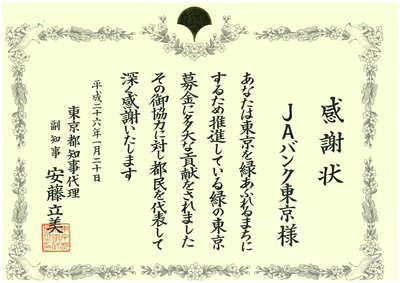 感謝状
JAバンク東京様
あなたは東京を緑あふれるまちに
するため推進している緑の東京
募金に多大な貢献をされました
その御協力に対し都民を代表して
深く感謝いたします
平成二十六年一月二十日
東京都知事代理
副知事 安藤立美